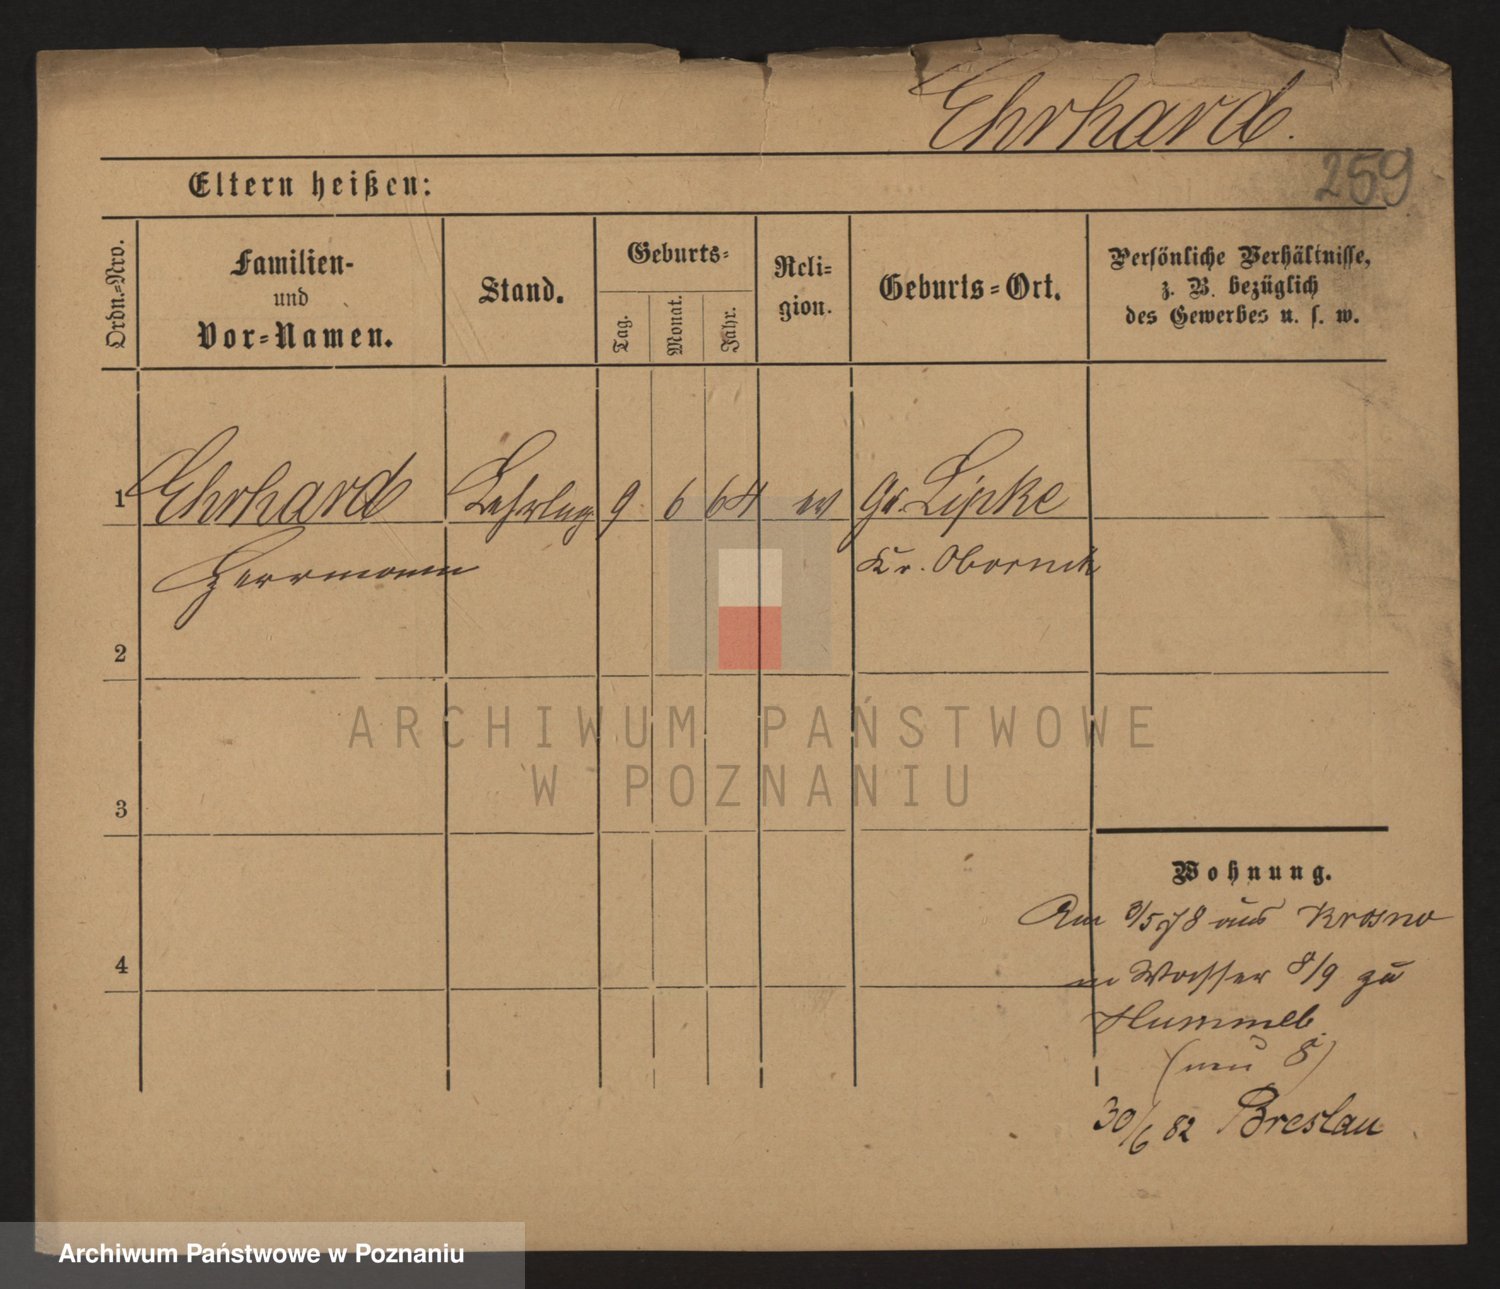 Ehrhard.
259
Eltern heißen:
Ordn.-Nro.
Familien-
und
Vor-Namen.
Stand.
Geburts-
Tag.
Monat.
Jahr.
Reli-
gion.
Geburts-Ort.
Persönliche Verhältnisse,
z. B. bezüglich
des Gewerbes u. s. w.
1 Ehrhard Lehrling 9 6 64 ev Gr. Lipke
Herrmann Kr. Obornik
2
3
4
Wohnung.
Am 3/5 78 aus Krosno
Wasser 8/9 zu
(neu 8)
30/6 82 Breslau
ARCHIWUM PAŃSTWOWE
W POZNANIU
Archiwum Państwowe w Poznaniu